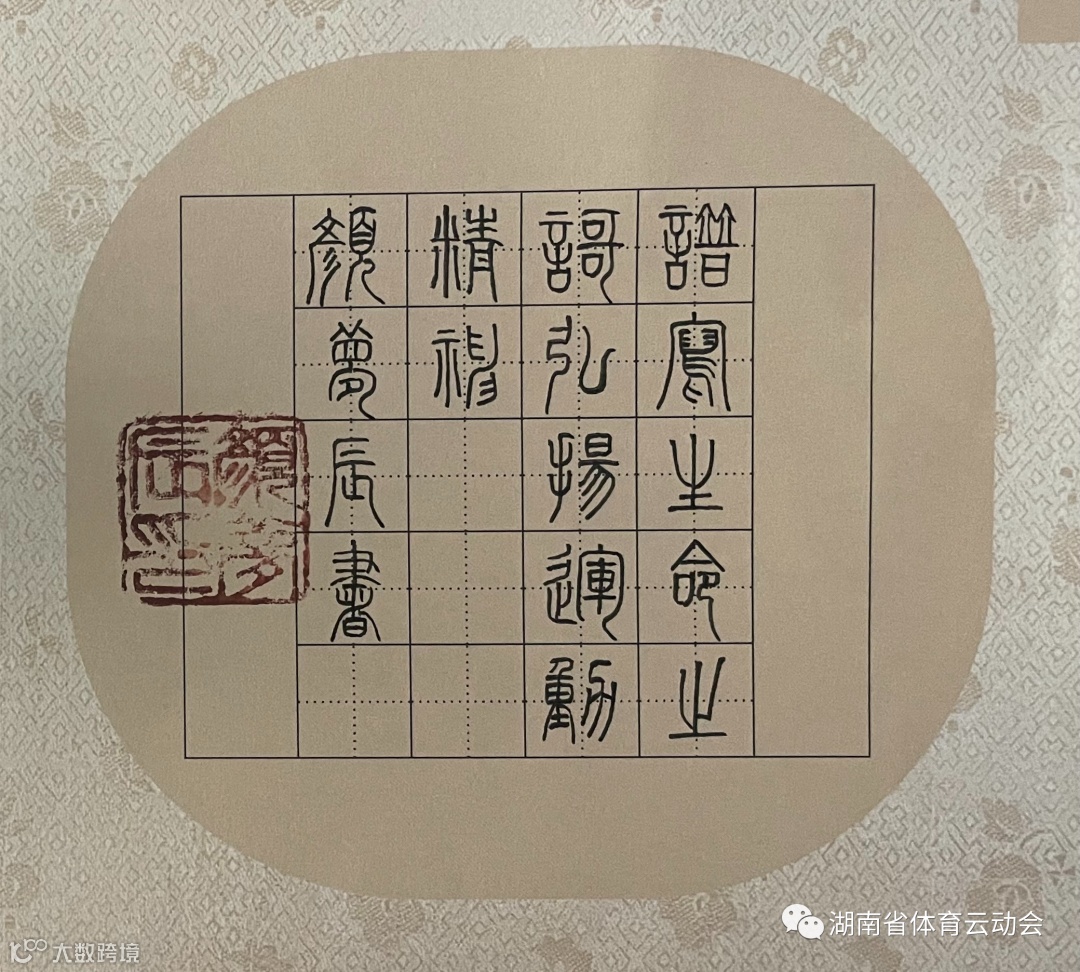 譜寫生命之
謌弘揚運動
精神
顏夢辰書
湖南省体育云动会
大数跨境